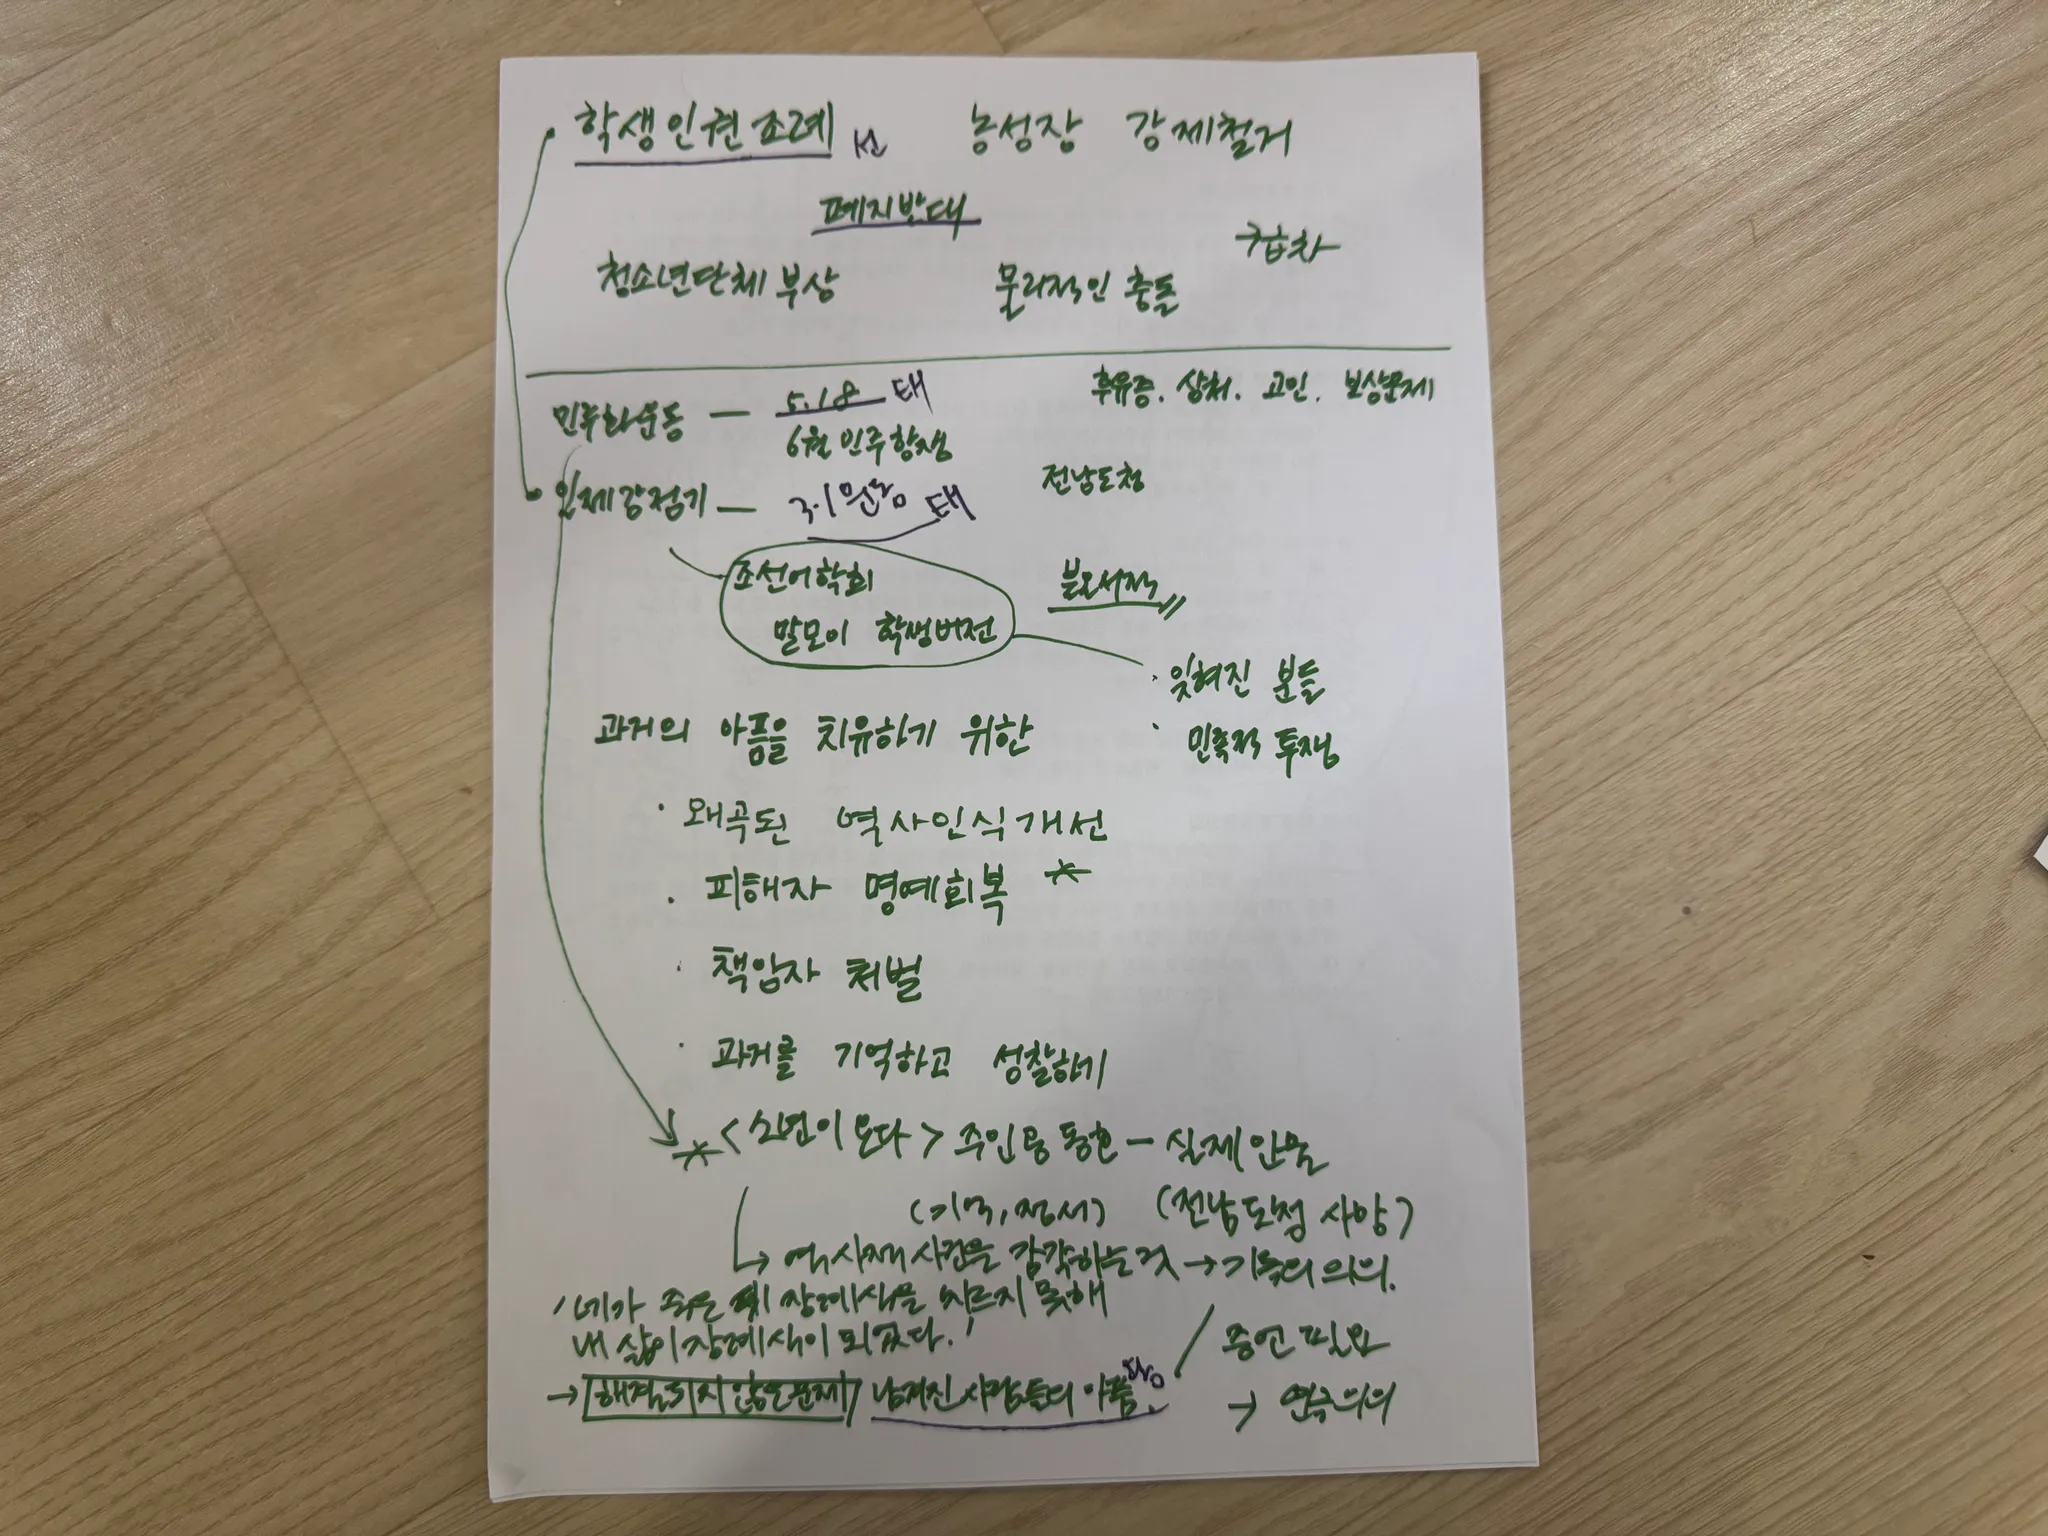 학생인권조례 선 농성장 강제철거
폐지반대
구급차
청소년단체 부상 물리적인 충돌
민주화운동 — 5.18 태 후유증. 상처. 고인. 보상문제
6월 민주항쟁
일제강점기 — 3.1운동 태 전남도청
조선어학회
말모이 학생버전
불온서적
· 잊혀진 분들
· 민족적 투쟁
과거의 아픔을 치유하기 위한
· 왜곡된 역사인식개선
· 피해자 명예회복 *
· 책임자 처벌
· 과거를 기억하고 성찰하기
* <소년이 온다> 주인공 동호 - 실제인물
(기억, 정서) (전남도청 사망)
→ 역사적 사건을 감각하는 것 → 기록의 의의.
'네가 죽은 뒤 장례식을 치르지 못해
내 삶이 장례식이 되었다.'
증언 필요
→ 해결되지 않은 문제 / 남겨진 사람들의 아픔.
→ 연극의의